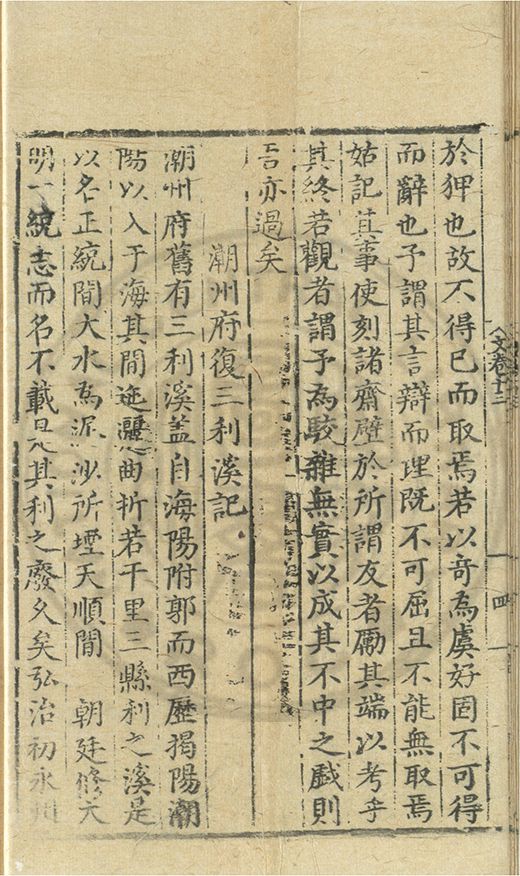 於狎也故不得已而取焉若以奇為虞好固不可得
而辭也予謂其言辯而理既不可屈且不能無取焉
姑記其事使刻諸齋壁於所謂友者勵其端以考乎
其終若觀者謂予為駁雜無實以成其不中之戲則
吾亦過矣
潮州府復三利溪記
潮州府舊有三利溪蓋自海陽附郭而西歷揭陽潮
陽以入于海其間迤邐曲折若干里三縣利之溪是
以名正統間大水為泥沙所堙天順間 朝廷修大
明一統志而名不載是其利之廢久矣弘治初永
文卷十二
四